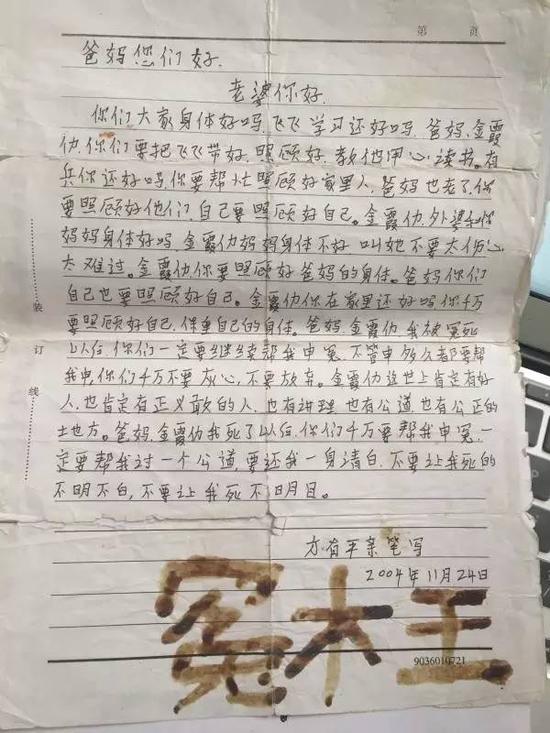 第 页
爸妈您们好.
老婆你好.
你们大家身体好吗.飞飞学习还好吗.爸妈.金霞
仂.你们要把飞飞带好.照顾好.教他用心读书.有
兵你还好吗.你要帮忙照顾好家里人.爸妈也老了.你
要照顾好他们.自己要照顾好自己.金霞仂.外婆和你
妈妈身体好吗.金霞仂妈妈身体不好 叫她不要太伤心
太难过.金霞仂你要照顾好爸妈的身体.爸妈你们
自己也要照顾好自己.金霞仂你在家里还好吗你千万
要照顾好自己.保重自己的身体.爸妈.金霞仂.我被冤死
以后.你们一定要继续帮我申冤.不管申多久都要帮
我申.你们千万不要灰心.不要放弃.金霞仂这世上肯定有好
人.也肯定有正义敢的人.也有讲理.也有公道.也有公正的
土地方.爸妈.金霞仂我死了以后.你们千万要帮我申冤.一
定要帮我讨一个公道.要还我一身清白.不要让我死的
不明不白.不要让我死不明目。
方有平亲笔写
2004年11月24日
冤大王
9036010721
装订线